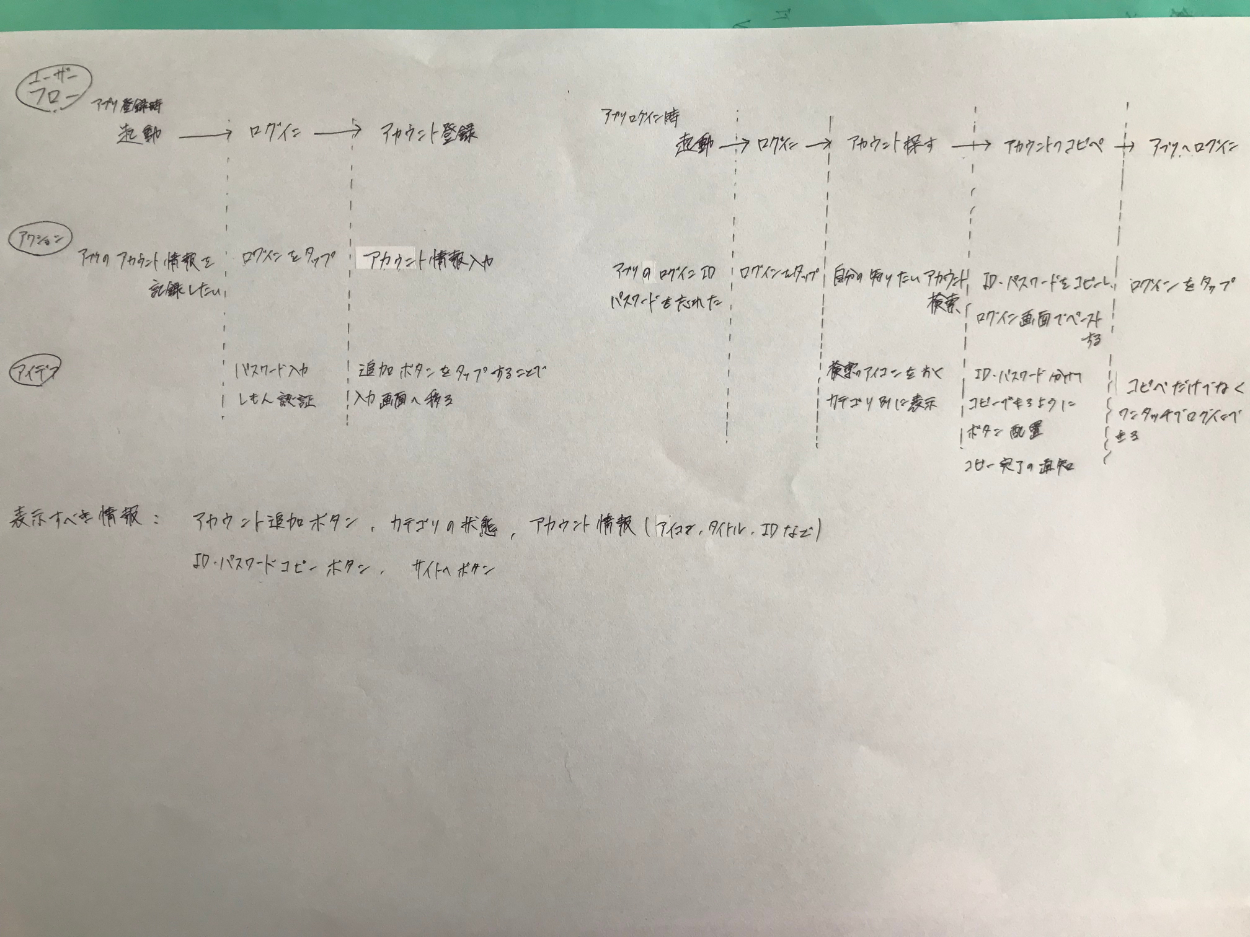 ユーザー
フロー
アプリ登録時
起動 → ログイン → アカウント登録
アプリログイン時
起動 → ログイン → アカウント探す → アカウントのコピペ → アプリへログイン
アクション
アプリのアカウント情報を
記録したい
ログインをタップ
アカウント情報入力
アプリのログインID
パスワードを忘れた
ログインをタップ
自分の知りたいアカウント
検索
ID・パスワードをコピーし、
ログイン画面でペースト
する
ログインをタップ
アイデア
パスワード入力
しもん認証
追加ボタンをタップすることで
入力画面へ移る
検索のアイコンをおく
カテゴリ別に表示
ID・パスワード分けて
コピーできるように
ボタン配置
コピー完了の通知
コピペだけでなく
ワンタッチでログインで
きる
表示すべき情報: アカウント追加ボタン, カテゴリの状態, アカウント情報(アイコン,タイトル,IDなど)
ID・パスワードコピーボタン, サイトへボタン